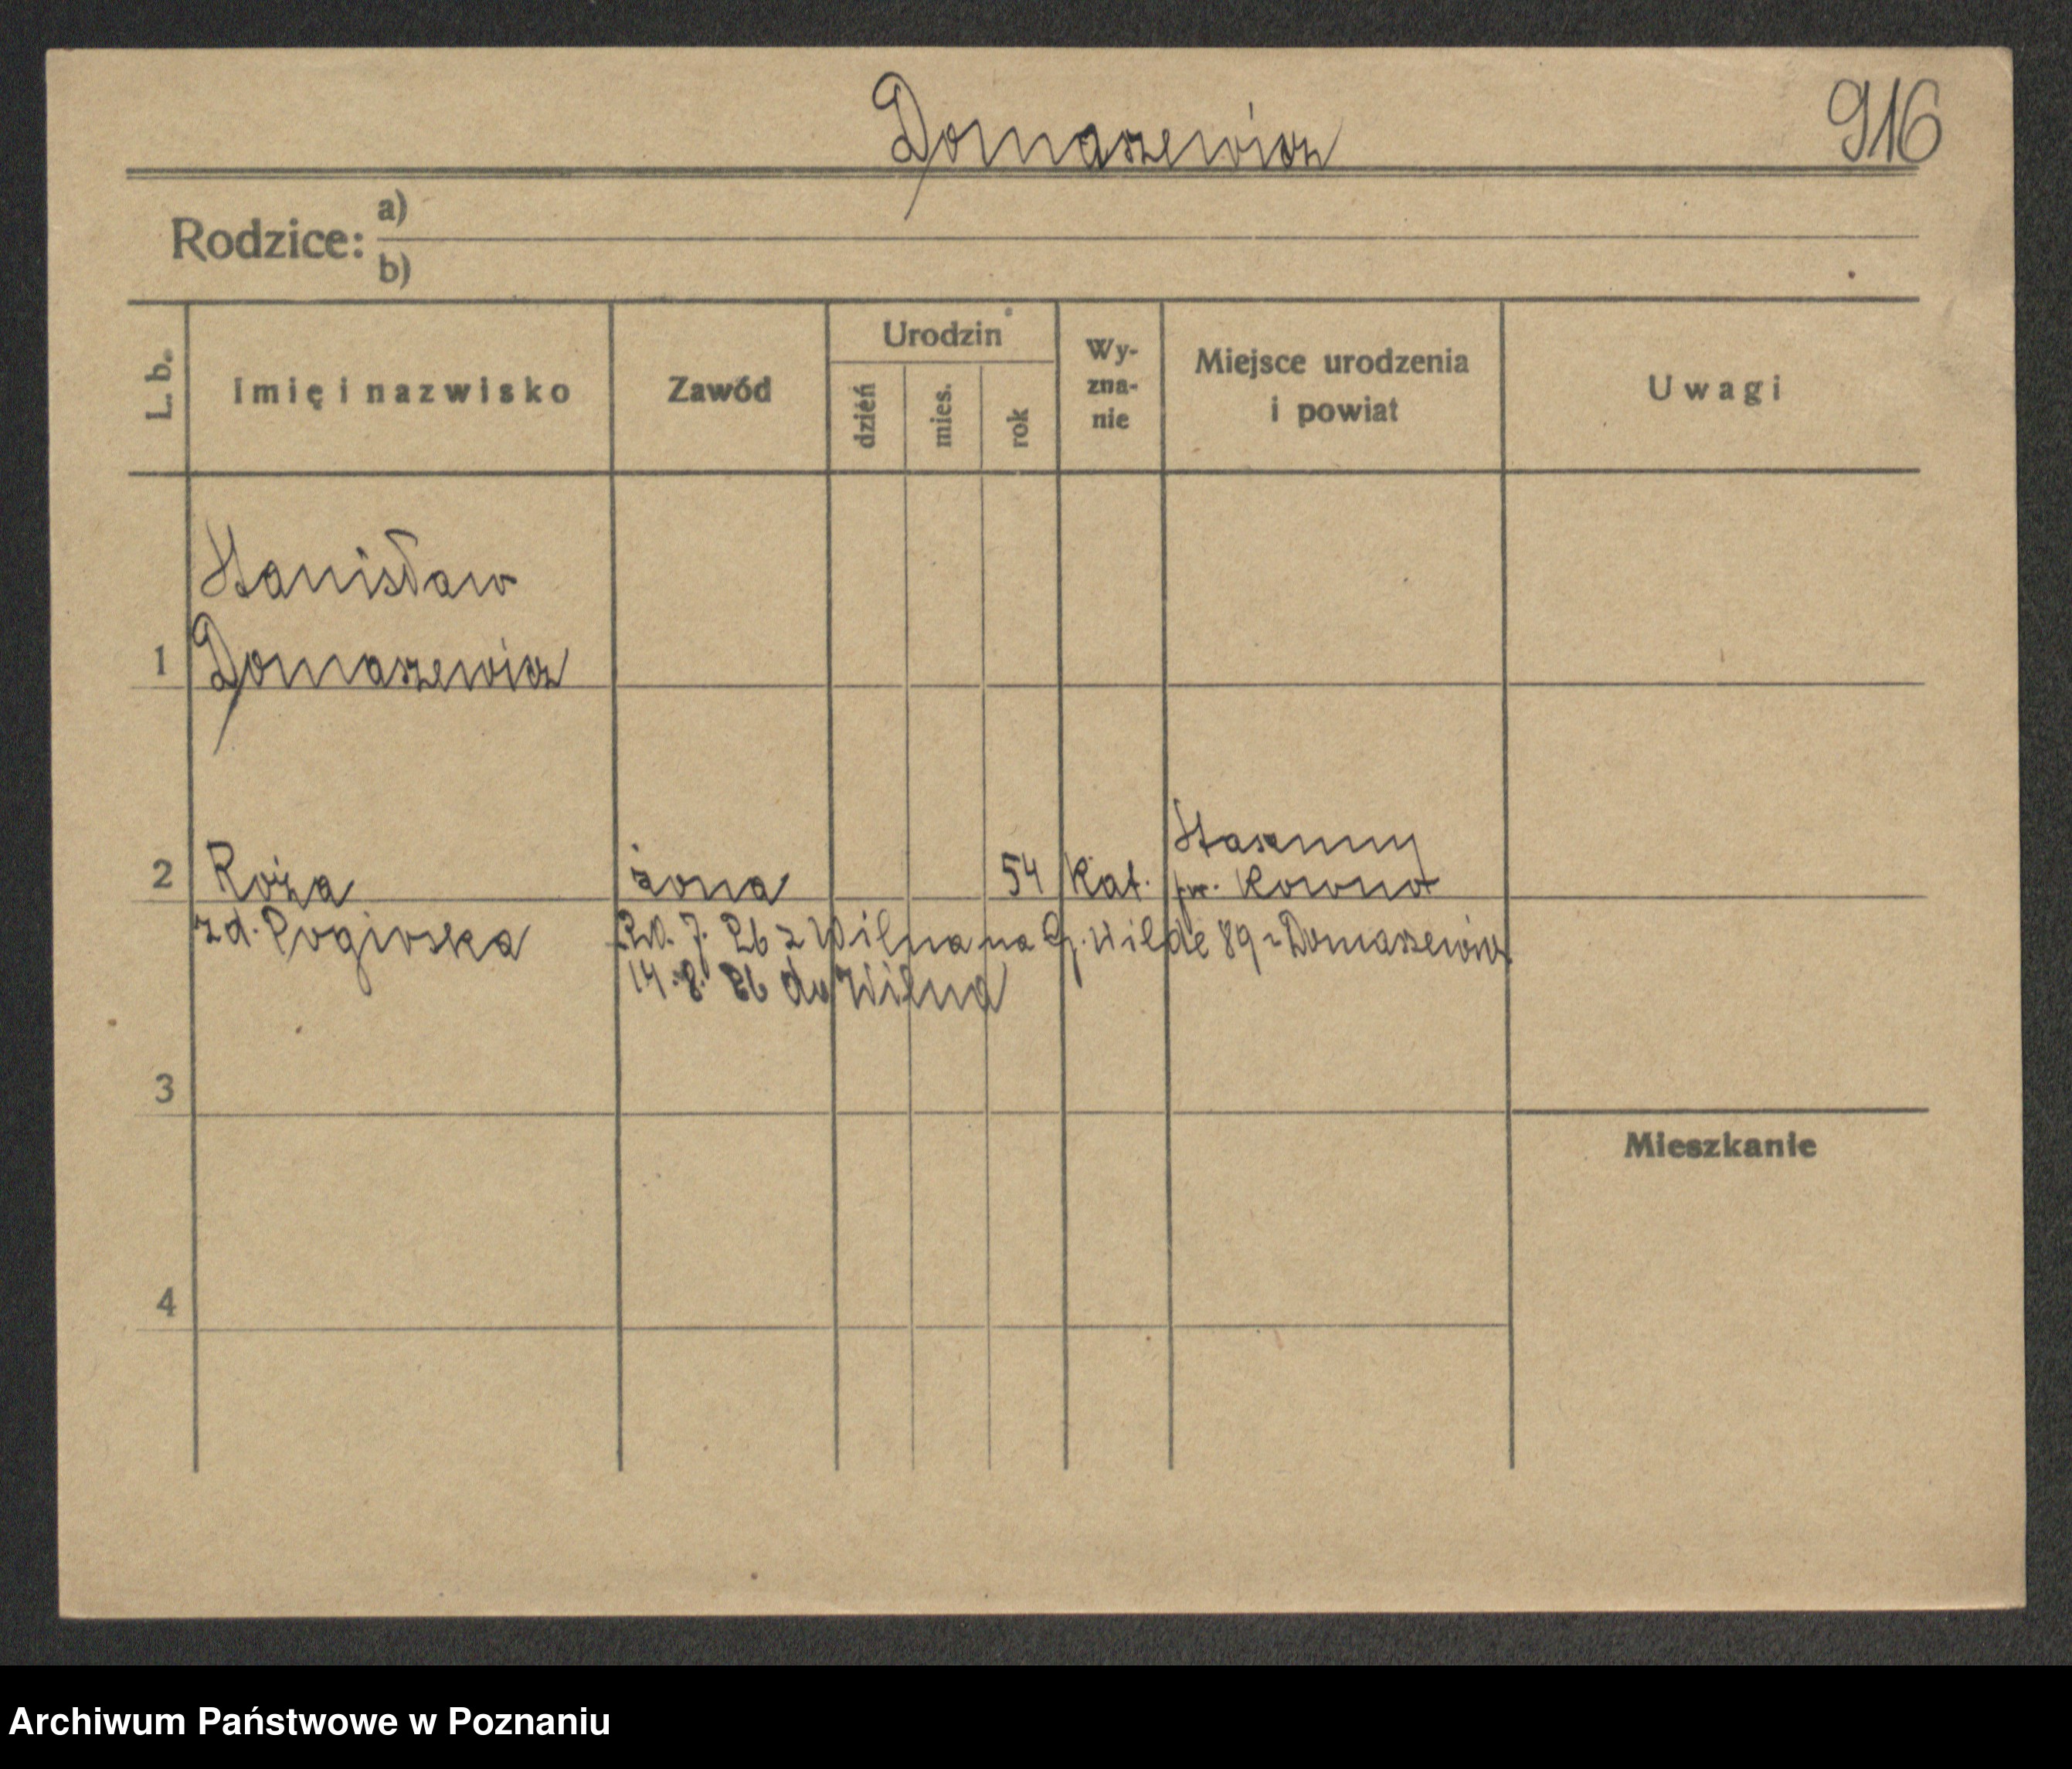 Domaszewicz
916
Rodzice:
a)
b)
L. b.
Imię i nazwisko
Zawód
Urodzin
dzień
mies.
rok
Wy-
zna-
nie
Miejsce urodzenia
i powiat
Uwagi
Stanisław
1 Domaszewicz
2 Roża żona 54 kat.
pw. Kowno
zd. Pogirska
7. 26 z Wilna na G. Wilde 89 Domaszewicz
14. 8. 26 do Wilna
3
Mieszkanie
4
Archiwum Państwowe w Poznaniu